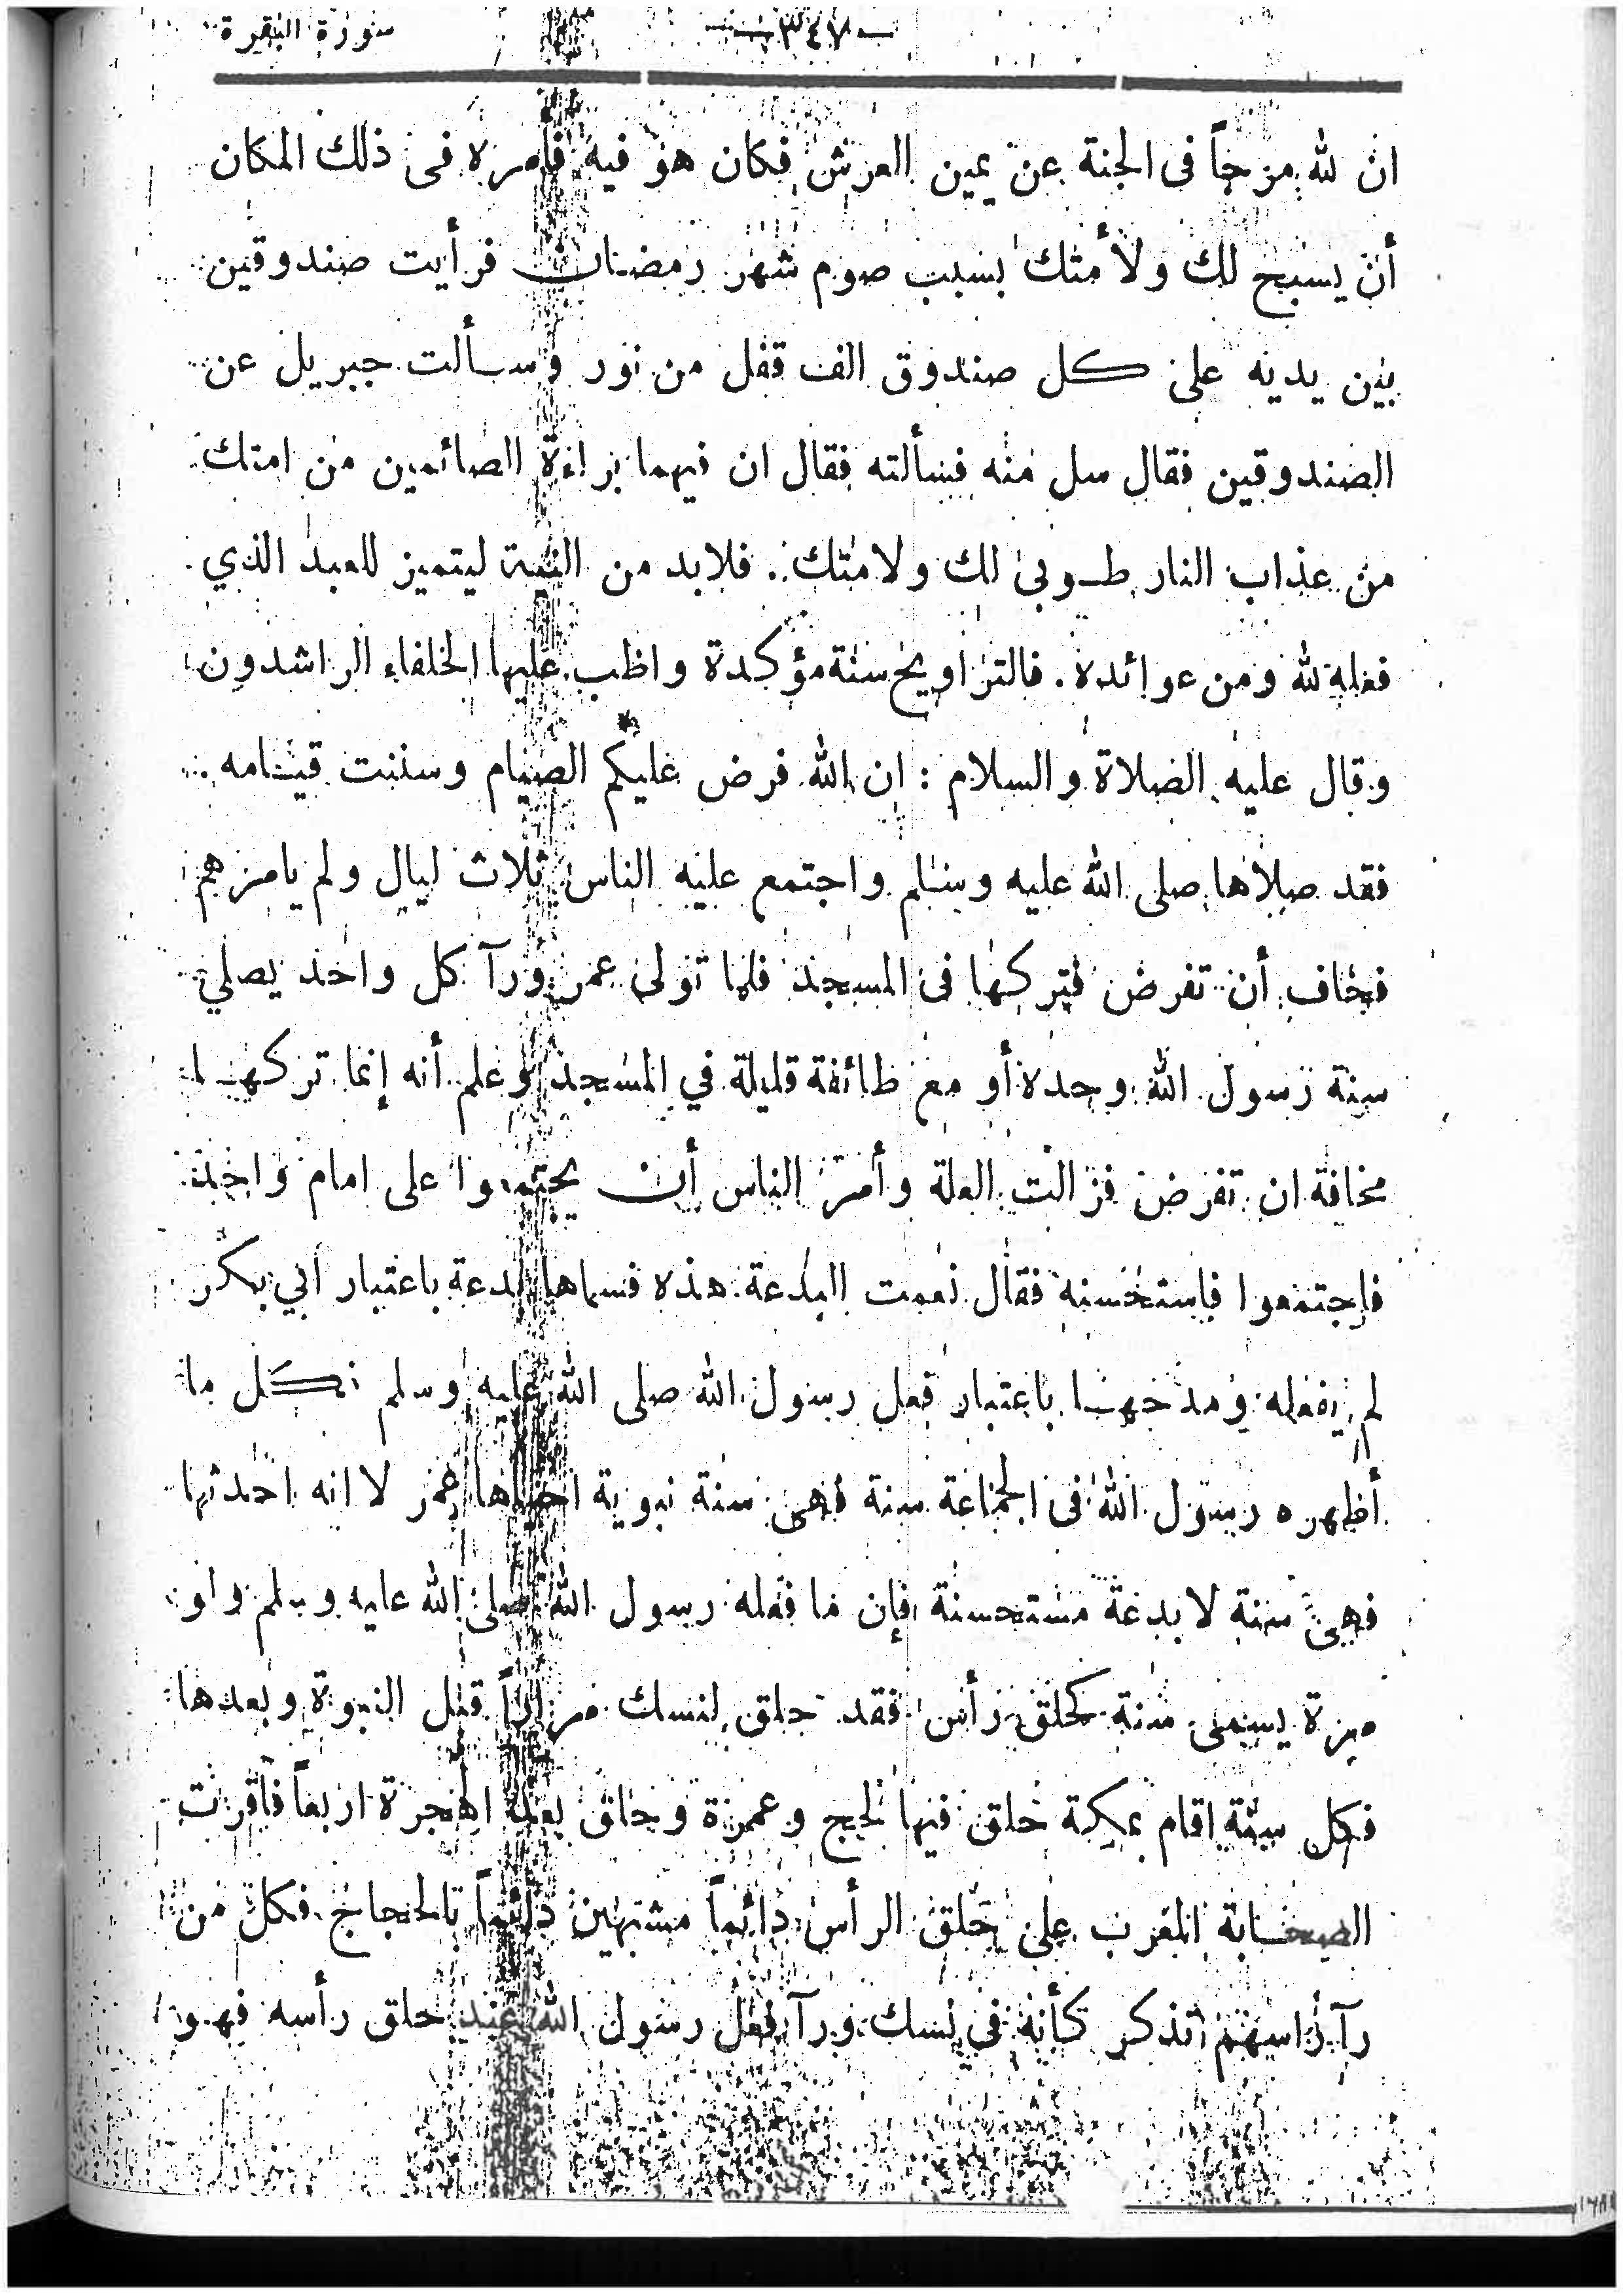 سورة البقرة
— ٣٤٧ —
ان لله مرجاً فى الجنة عن يمين العرش فكان هو فيه فأمره فى ذلك المكان
أن يسبح لك ولأمتك بسبب صوم شهر رمضان فرأيت صندوقين
بين يديه على كل صندوق الف قفل من نور وسألت جبريل عن
الصندوقين فقال سل منه فسألته فقال ان فيهما براءة الصائمين من امتك
من عذاب النار طوبى لك ولامتك. فلابد من النية ليتميز للعبد الذي
فعله لله ومن عوائده. فالتراويح سنة مؤكدة واظب عليها الخلفاء الراشدون
وقال عليه الصلاة والسلام : ان الله فرض عليكم الصيام وسننت قيامه
فقد صلاها صلى الله عليه وسلم واجتمع عليه الناس ثلاث ليال ولم يامرهم
فخاف أن تفرض فتركها فى المسجد فلما تولى عمر ورآ كل واحد يصلي
سنة رسول الله وحده أو مع طائفة قليلة في المسجد وعلم أنه إنما تركها
مخافة ان تفرض فزالت العلة وأمر الناس أن يجتمعوا على امام واحد
فاجتمعوا فاستحسنه فقال نعمت البدعة هذه فسماها بدعة باعتبار أبي بكر
لم يفعله ومدحها باعتبار فعل رسول الله صلى الله عليه وسلم فكل ما
أظهره رسول الله فى الجماعة سنة فهى سنة نبوية احياها عمر لا انه احدثها
فهى سنة لا بدعة مستحسنة فإن ما فعله رسول الله صلى الله عليه وسلم ولو
مرة يسمى سنة كحلق رأس فقد حلق لنسك مراراً قبل النبوة وبعدها
فكل سنة اقام بمكة حلق فيها لحج وعمرة وحلق بعد الهجرة اربعاً فأقرت
الصحابة المغرب على حلق الرأس دائماً مشبهين دائماً بالحجاج فكل من
رآ رأسهم تذكر كأنه فى نسك ورآ فعل رسول الله عند حلق رأسه فهو